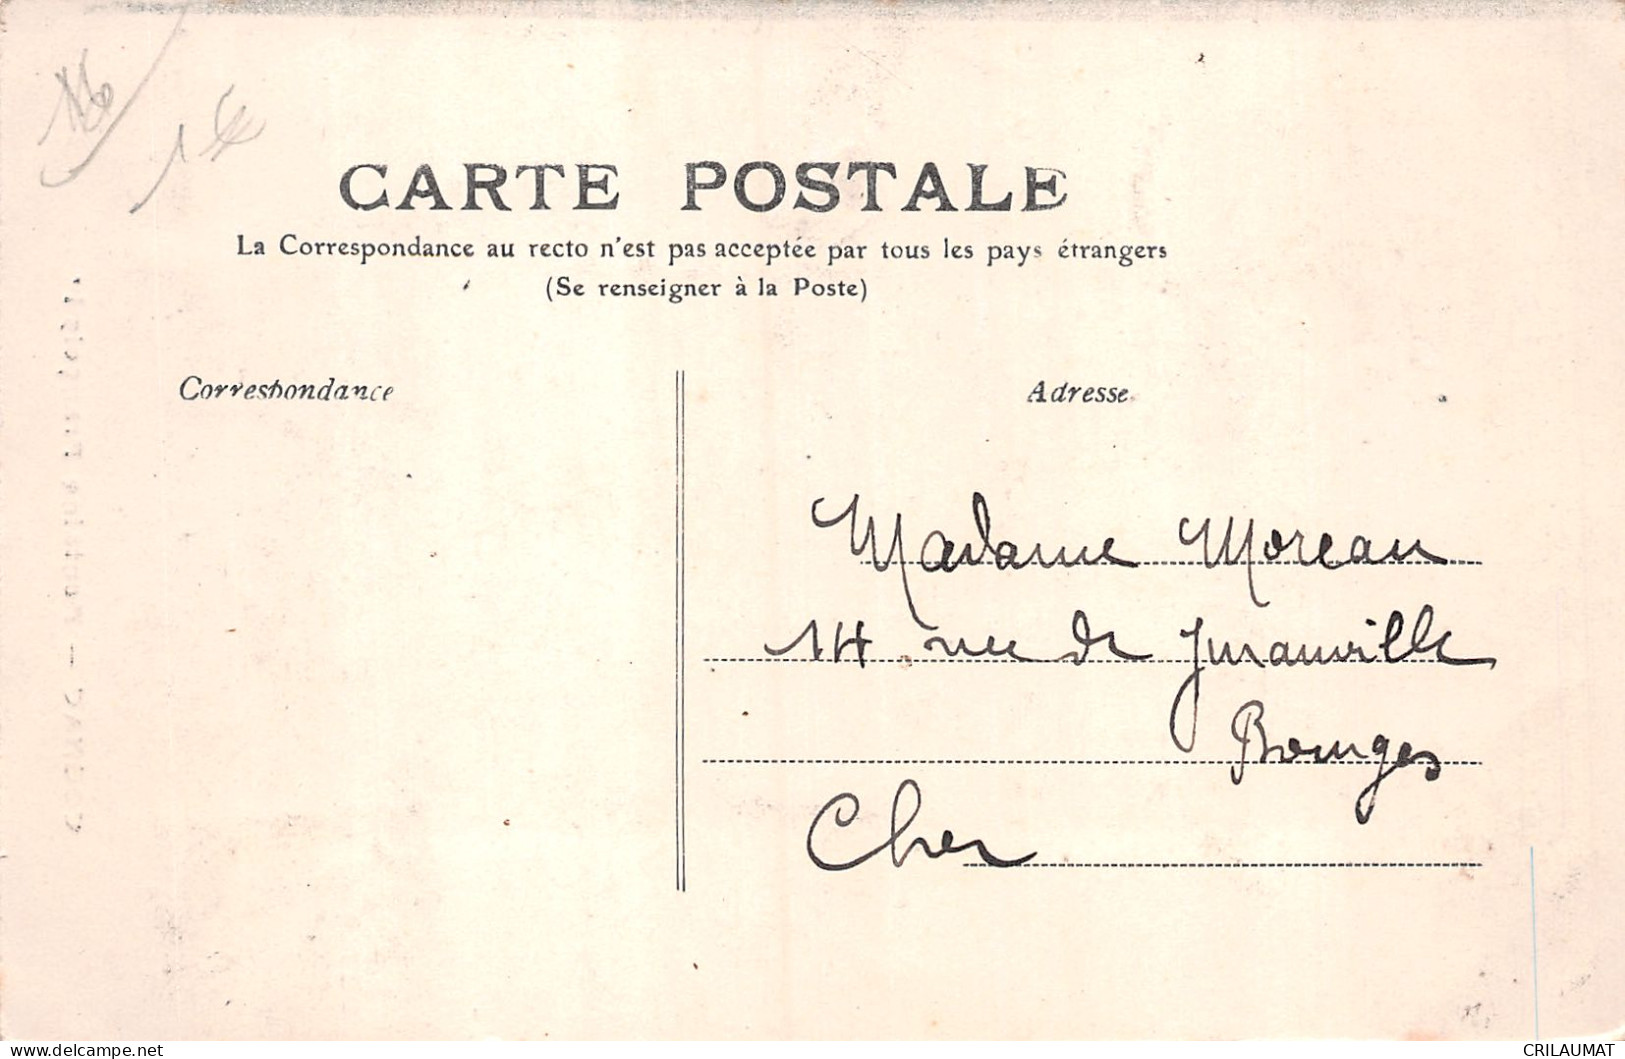 16
1 €
CARTE POSTALE
La Correspondance au recto n'est pas acceptée par tous les pays étrangers
(Se renseigner à la Poste)
Correspondance
Adresse
Madame Moreau
14 rue de Juranville
Bourges
Cher
CRILAUMAT